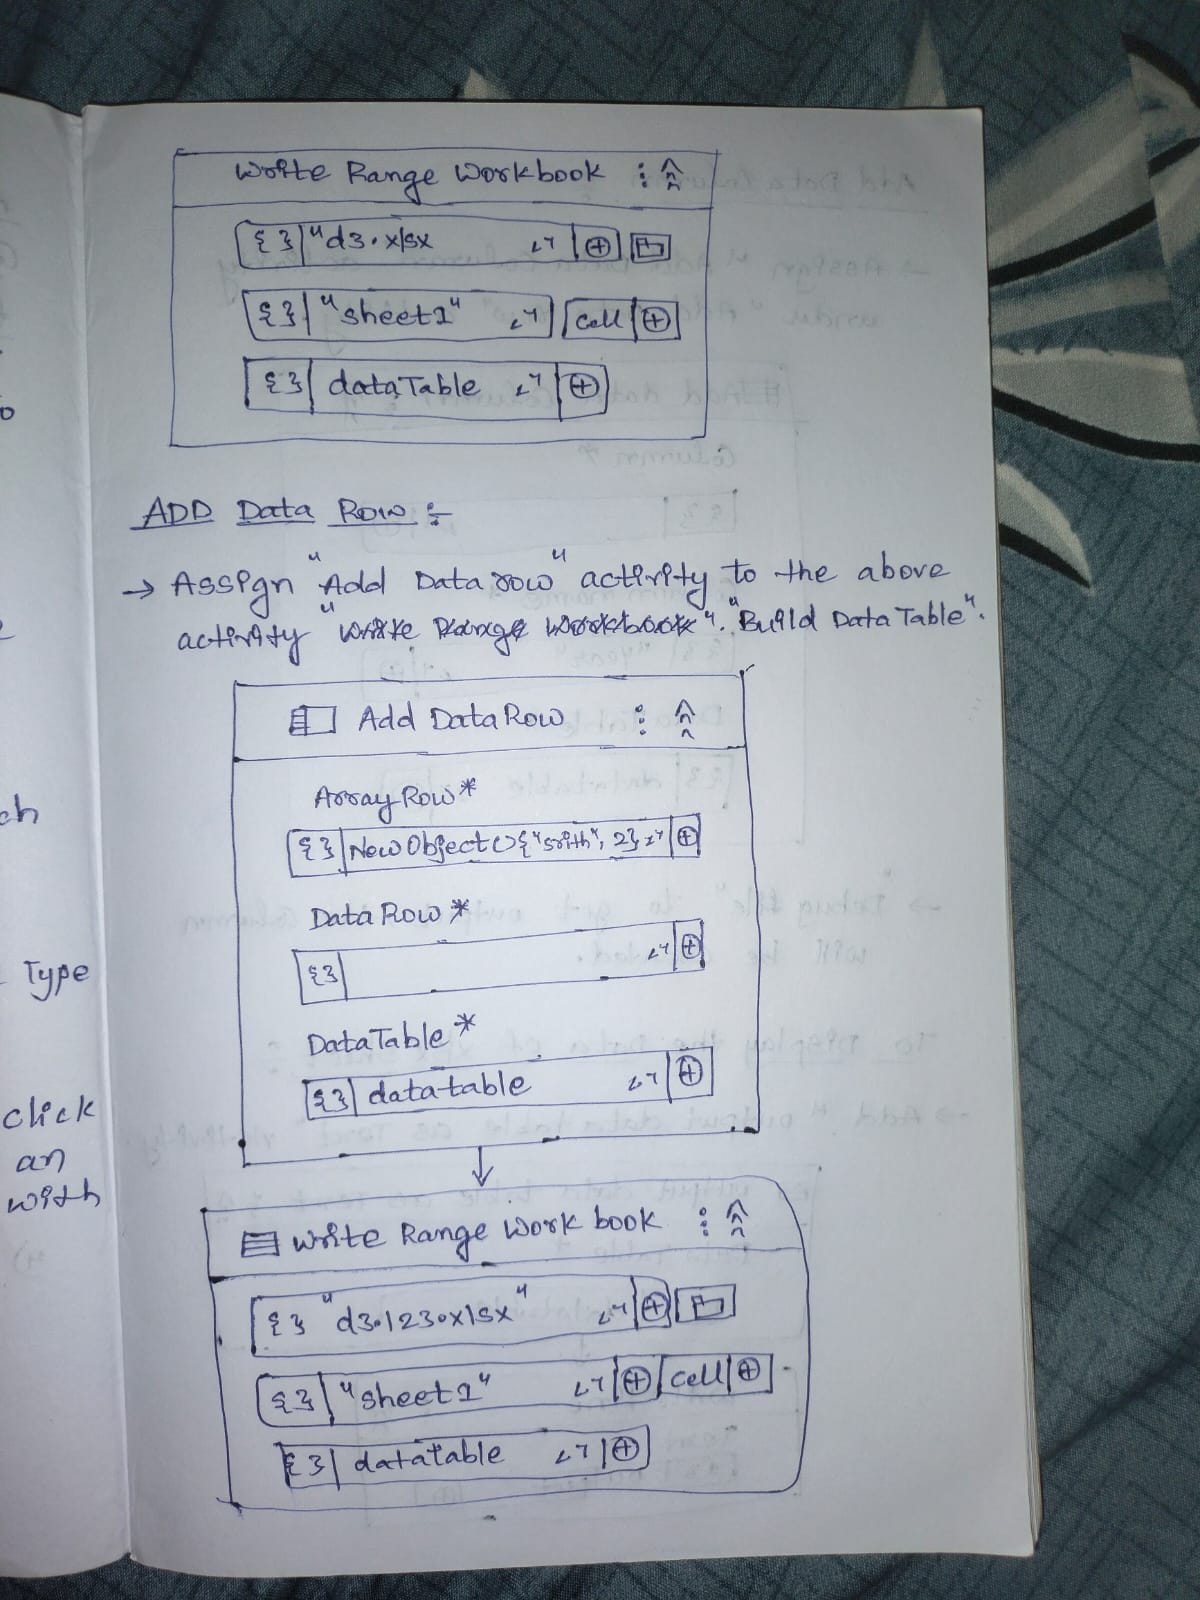 Write Range Workbook
{} "d3.xlsx
{} "sheet1" cell
{} dataTable
ADD Data Row :-
→ Assign "Add Data row" activity to the above
activity "Write Range Workbook". "Build Data Table".
Add Data Row
Array Row*
{} New Object () {"srith", 2}
Data Row *
{}
DataTable *
{} datatable
Write Range Work book
{} "d3.123.xlsx"
{} "sheet1" cell
{} datatable
ch
Type
click
an
with